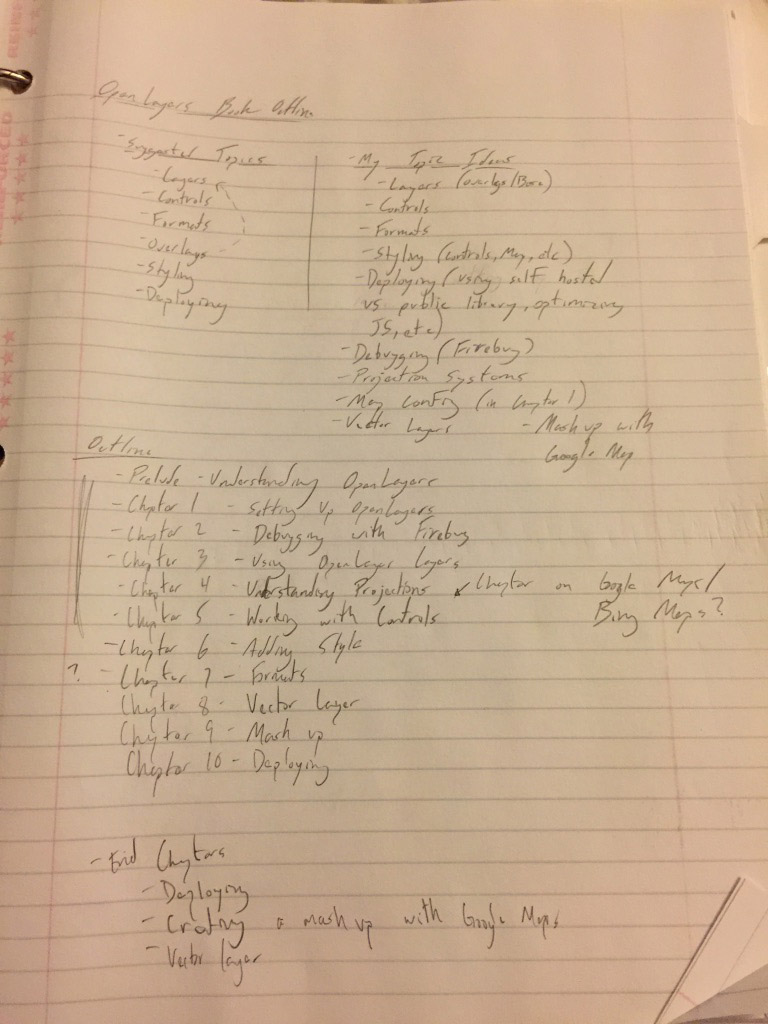 OpenLayers Book Outline
- Suggested Topics
- Layers
- Controls
- Formats
- Overlays
- Styling
- Deploying
- My Topic Ideas
- Layers (overlays/Base)
- Controls
- Formats
- Styling (controls, Map, etc)
- Deploying (using self hosted
vs public library, optimizing
JS, etc)
- Debugging (Firebug)
- Projection Systems
- Map Config (in Chapter 1)
- Vector Layers
- Mash up with
Google Map
Outline
- Prelude - Understanding OpenLayers
- Chapter 1 - Setting Up OpenLayers
- Chapter 2 - Debugging with Firebug
- Chapter 3 - Using OpenLayer Layers
- Chapter 4 - Understanding Projections
Chapter on Google Maps/
Bing Maps?
- Chapter 5 - Working with Controls
- Chapter 6 - Adding Style
? - Chapter 7 - Formats
Chapter 8 - Vector Layer
Chapter 9 - Mash up
Chapter 10 - Deploying
- End Chapters
- Deploying
- Creating a mash up with Google Maps
- Vector layer